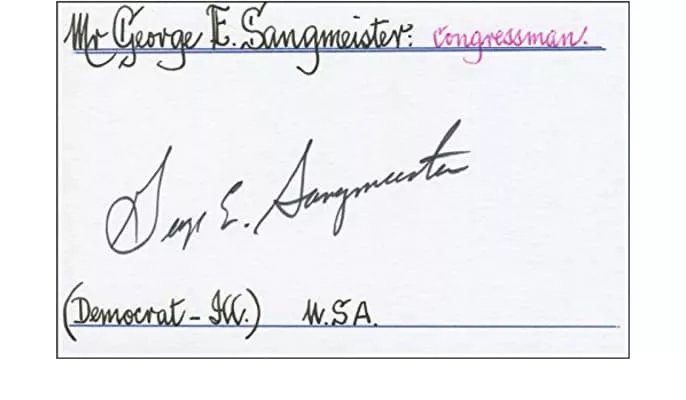 Mr George E. Sangmeister: Congressman.
George E. Sangmeister
(Democrat - Ill.) U.S.A.